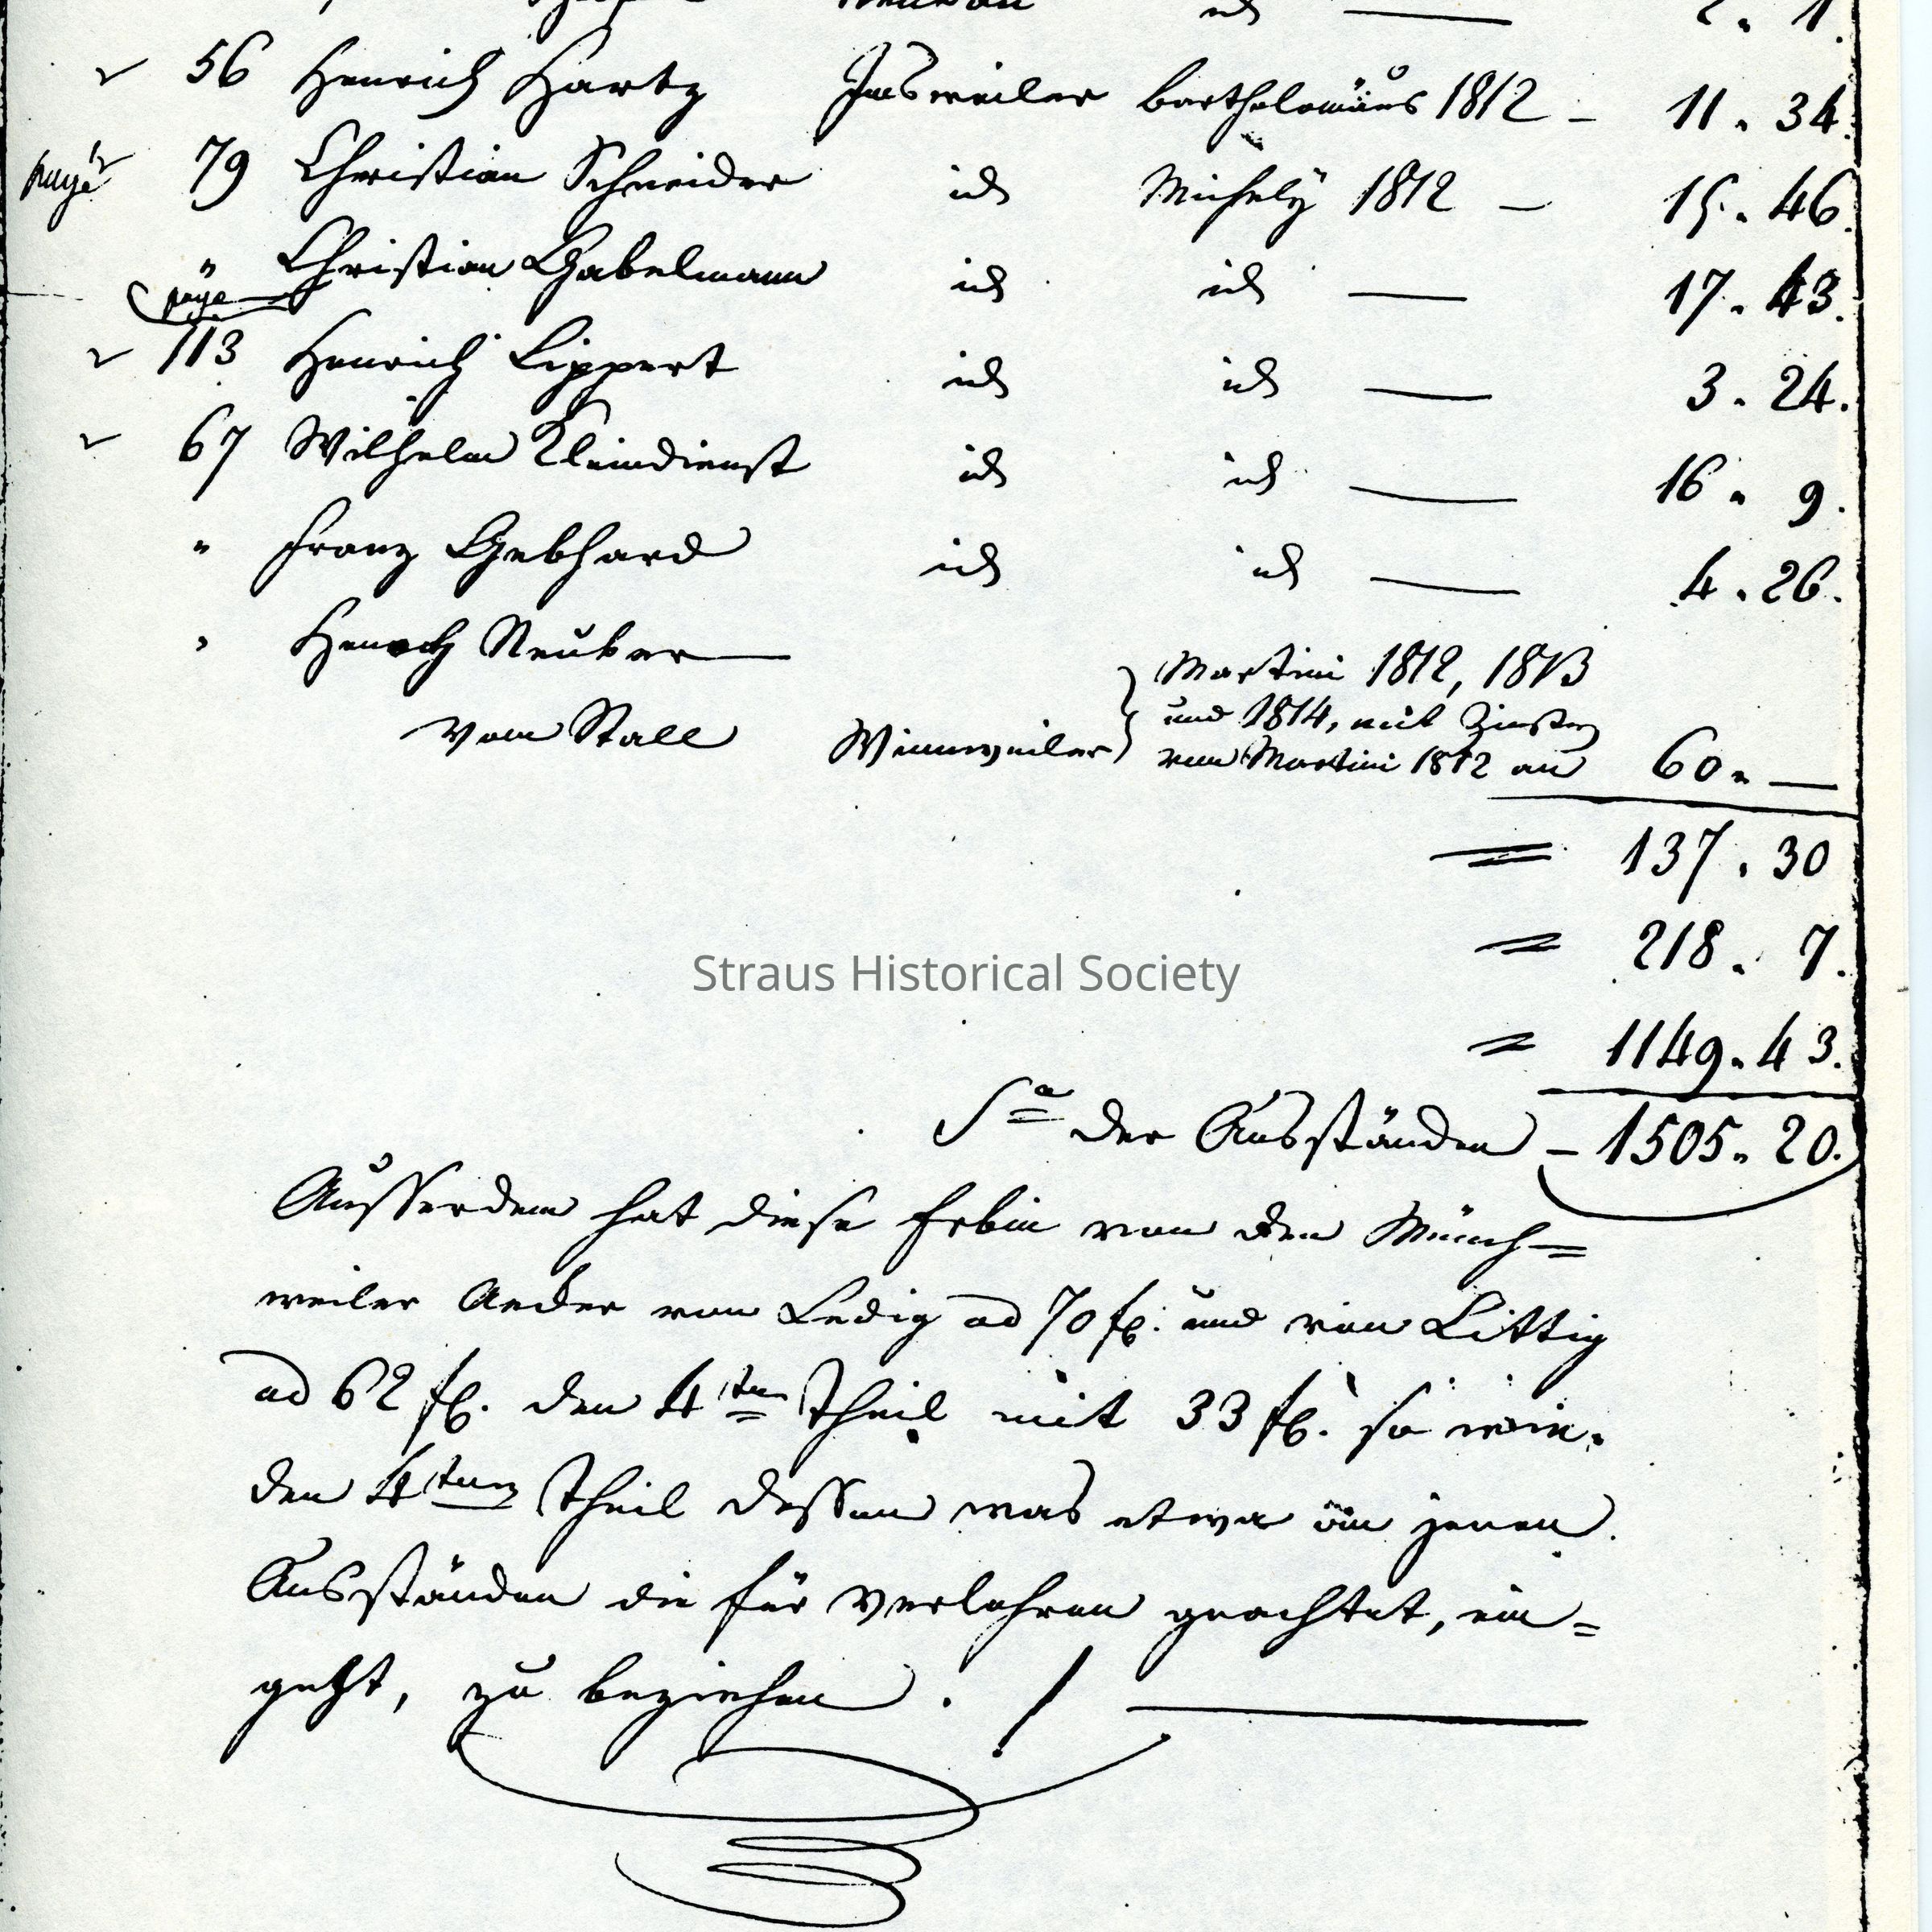 id — 2. 1.
56 Henrich Hartz Imsweiler Bartholomäus 1812 – 11. 34.
payé 79 Christian Schneider id Michely 1812 — 15. 46.
" Christian Gabelmann id id — 17. 43.
payé
113 Henrich Lippert id id — 3. 24.
67 Wilhelm Kleindienst id id — 16. 9.
" Franz Gebhard id id — 4. 26.
" Henoch Neuber —
Martini 1812, 1813
und 1814, mit Zinsen
vom Stall Winnweiler von Martini 1812 an 60. —
= 137. 30
= 218. 7.
Straus Historical Society
= 1149. 43.
Sa der Ausständen – 1505. 20.
Ausserdem hat diese Erbin von den Münch=
weiler Aecker von Ledig ad 70 fl. und von Littig
ad 62 fl. den 4ten Theil mit 33 fl. so wie
den 4ten Theil dessen was etwa an jenen
Ausständen die für verlohren geachtet, ein=
geht, zu beziehen. /